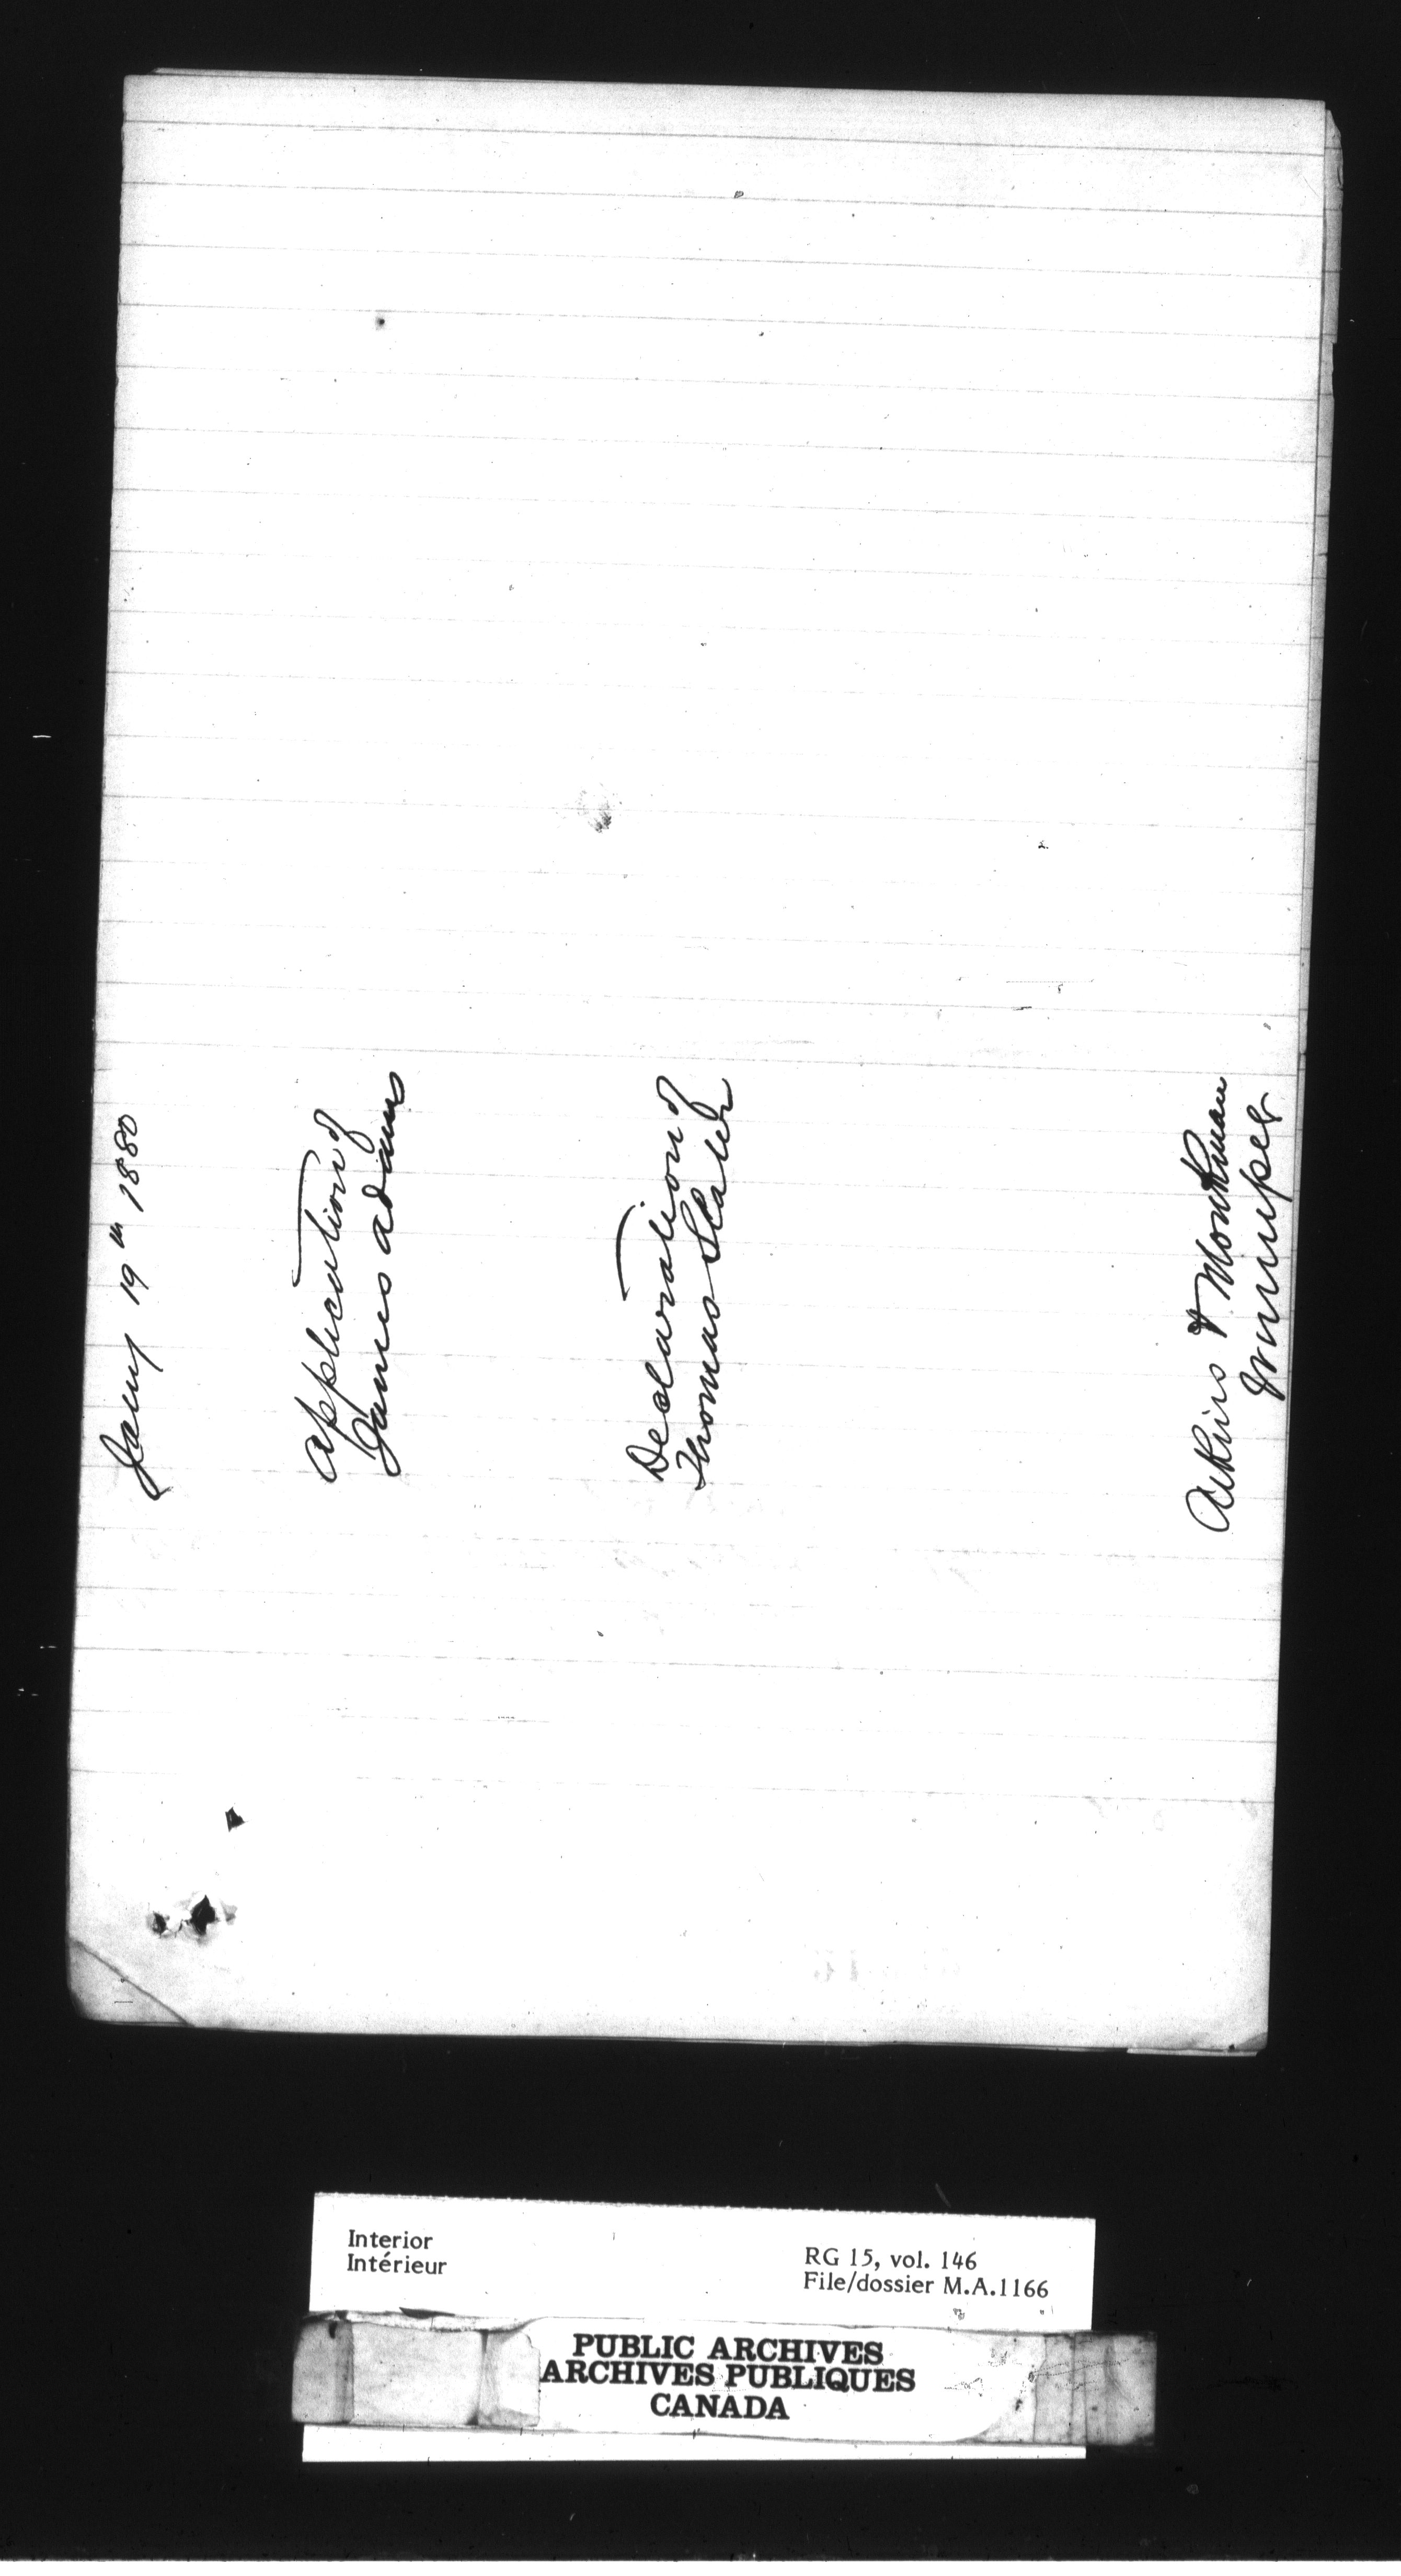 Jany 19th 1880
Application of
James Adams
Declaration of
Thomas Slater
Aikins & Monkman
Winnipeg
Interior
Intérieur
RG 15, vol. 146
File/dossier M.A.1166
PUBLIC ARCHIVES
ARCHIVES PUBLIQUES
CANADA